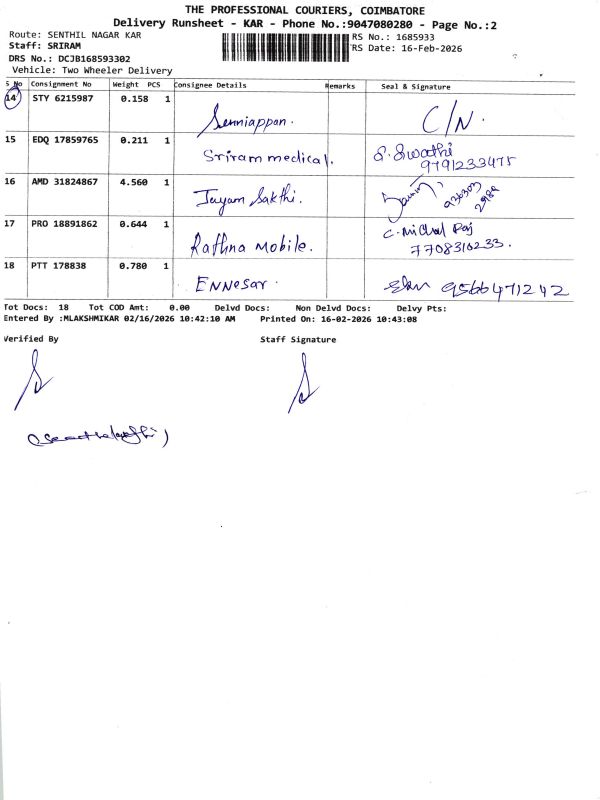 THE PROFESSIONAL COURIERS, COIMBATORE
Delivery Runsheet - KAR - Phone No.:9047080280 - Page No.:2
Route: SENTHIL NAGAR KAR
RS No.: 1685933
Staff: SRIRAM
RS Date: 16-Feb-2026
DRS No.: DCJB168593302
Vehicle: Two Wheeler Delivery
S No Consignment No Weight PCS Consignee Details Remarks Seal & Signature
14 STY 6215987 0.158 1 Senniappan. C/N.
15 EDQ 17859765 0.211 1 Sriram medical. S. Swathi
9791233475
16 AMD 31824867 4.560 1 Jayam Sakthi.
17 PRO 18891862 0.644 1 Rathna Mobile. C. Michal Raj
7708310233.
18 PTT 178838 0.780 1 ENNesar. 9566471242
Tot Docs: 18 Tot COD Amt: 0.00 Delvd Docs: Non Delvd Docs: Delvy Pts:
Entered By :MLAKSHMIKAR 02/16/2026 10:42:10 AM Printed On: 16-02-2026 10:43:08
Verified By Staff Signature